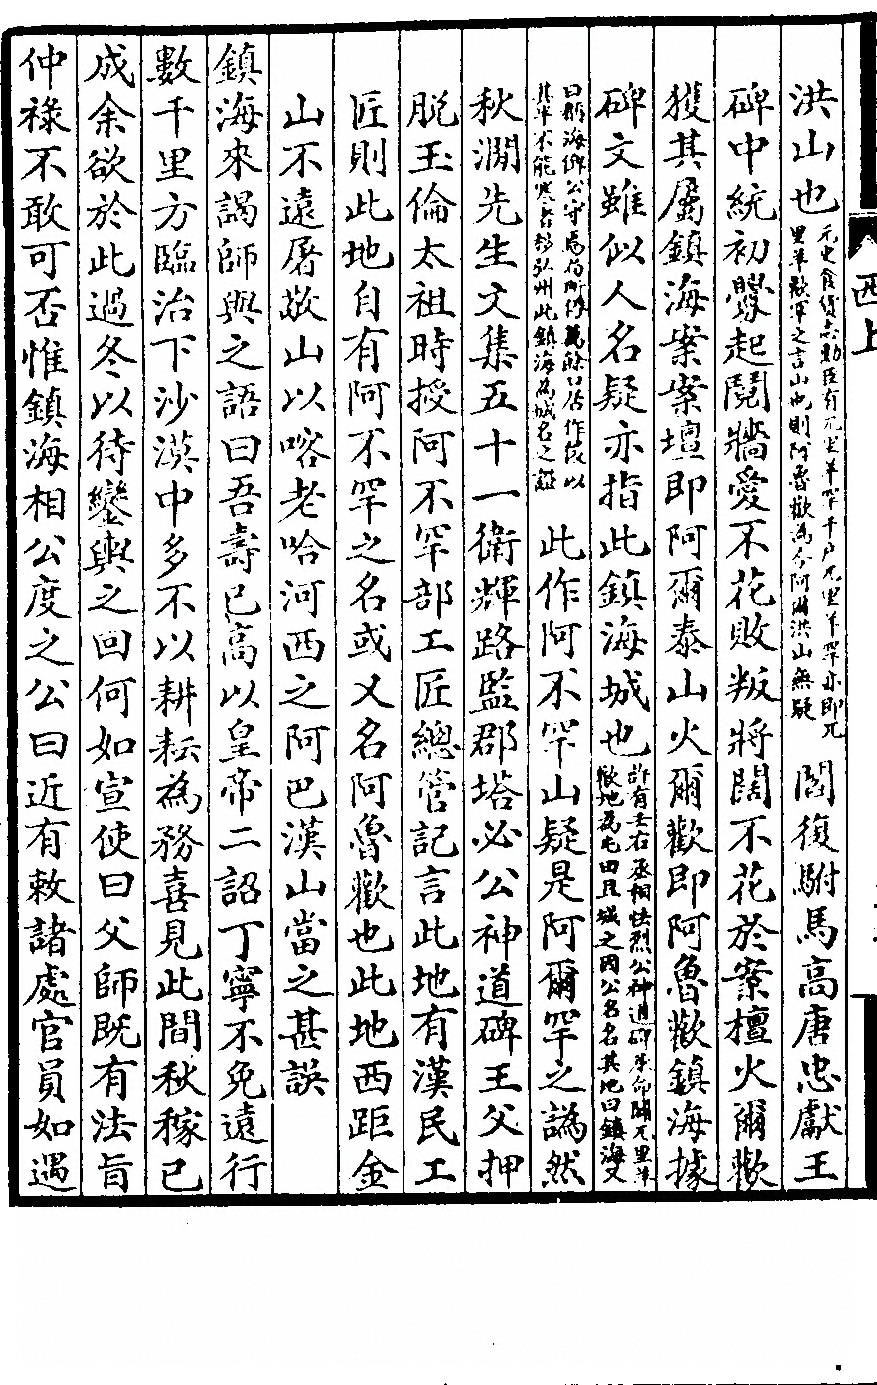 西上
洪山也元史食貨志勲臣有兀里羊罕千户兀里羊罕亦即兀里羊歇罕之言山也則阿魯歡為今阿爾洪山無疑閻復駙馬高唐忠獻王
碑中統初釁起鬩牆愛不花敗叛將闊不花於案檀火爾歡
獲其屬鎮海案案壇即阿爾泰山火爾歡即阿魯歡鎮海據
碑文雖似人名疑亦指此鎮海城也許有壬右丞相怯烈公神道碑命闢兀里羊歡地為屯田且城之因公名名其地曰鎮海又
曰鎮海以此鎮海為城名之證此作阿不罕山疑是阿爾罕之譌然
秋澗先生文集五十一衛輝路監郡塔必公神道碑王父押
脱玉倫太祖時授阿不罕部工匠總管記言此地有漢民工
匠則此地自有阿不罕之名或又名阿魯歡也此地西距金
山不遠屠敬山以喀老哈河西之阿巴漢山當之甚誤
鎮海來謁師與之語曰吾壽已高以皇帝二詔丁寧不免遠行
數千里方臨治下沙漠中多不以耕耘為務喜見此間秋稼已
成余欲於此過冬以待鑾輿之回何如宣使曰父師既有法旨
仲祿不敢可否惟鎮海相公度之公曰近有敕諸處官員如遇